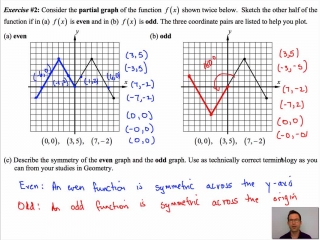 Exercise #2: Consider the partial graph of the function f(x) shown twice below. Sketch the other half of the
function if in (a) f(x) is even and in (b) f(x) is odd. The three coordinate pairs are listed to help you plot.
(a) even
(b) odd
y
y
(3,5)
(-3,5)
(7,-2)
(-7,-2)
(0,0)
(-0,0)
(0,0)
x
180°
(3,5)
(-3,-5)
x
(7,-2)
(-7,2)
(0,0)
(-0,-0)
(0,0), (3,5), (7,−2)
(0,0), (3,5), (7,−2)
(c) Describe the symmetry of the even graph and the odd graph. Use as technically correct terminology as you
can from your studies in Geometry.
Even: An even function is symmetric across the y-axis
Odd: An odd function is symmetric across the origin